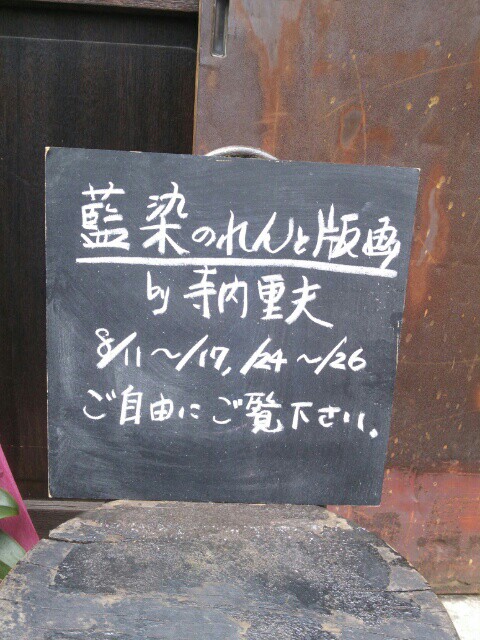 藍染のれんと版画
by 寺内重夫
8/11〜/17, /24〜/26
ご自由にご覧下さい。